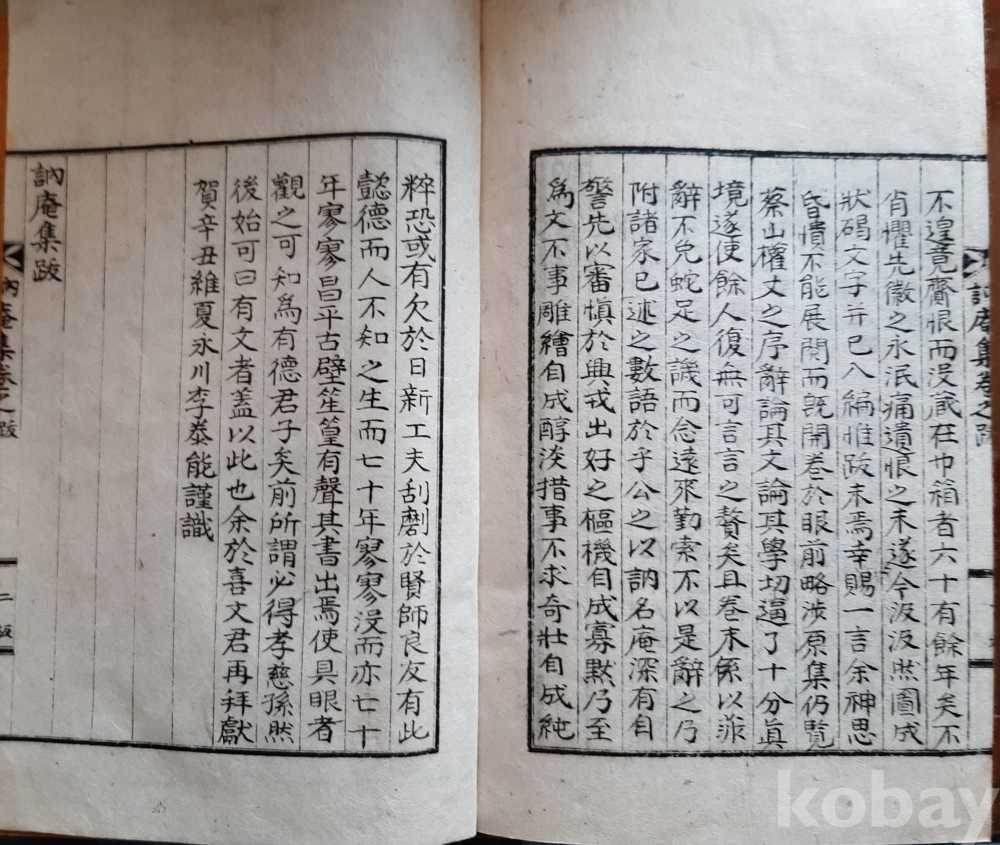 訥庵集卷之跋
不遑竟齎恨而没蔵在巾箱者六十有餘年矣不
肖懼先徽之永泯痛遺恨之未遂今汲汲然圖成
狀碣文字并已入編惟跋未焉幸賜一言余神思
昏憒不能展閱而旣開卷於眼前略涉原集仍覽
蔡山權丈之序辭論其文論其學切逼了十分眞
境遂使餘人復無可言言之贅矣且卷末係以非
辭不免蛇足之譏而念遠來勤索不以是辭之乃
附諸家已述之數語於乎公之以訥名庵深有自
警先以審愼於興戎出好之樞機自成寡默乃至
爲文不事雕繪自成醇淡措事不求奇壯自成純
粹恐或有欠於日新工夫刮劘於賢師良友有此
懿德而人不知之生而七十年寥寥没而亦七十
年寥寥昌平古壁笙篁有聲其書出焉使具眼者
觀之可知爲有德君子矣前所謂必得孝慈孫然
後始可曰有文者盖以此也余於喜文君再拜獻
賀辛丑維夏永川李泰能謹識
訥庵集跋
訥庵集卷之跋
二
kobay